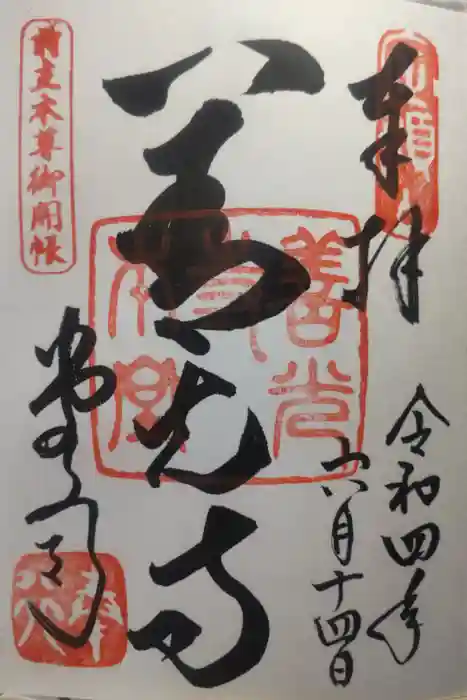 奉拝
令和四年
六月十四日
善光寺
善光寺本堂
前立本尊御開帳